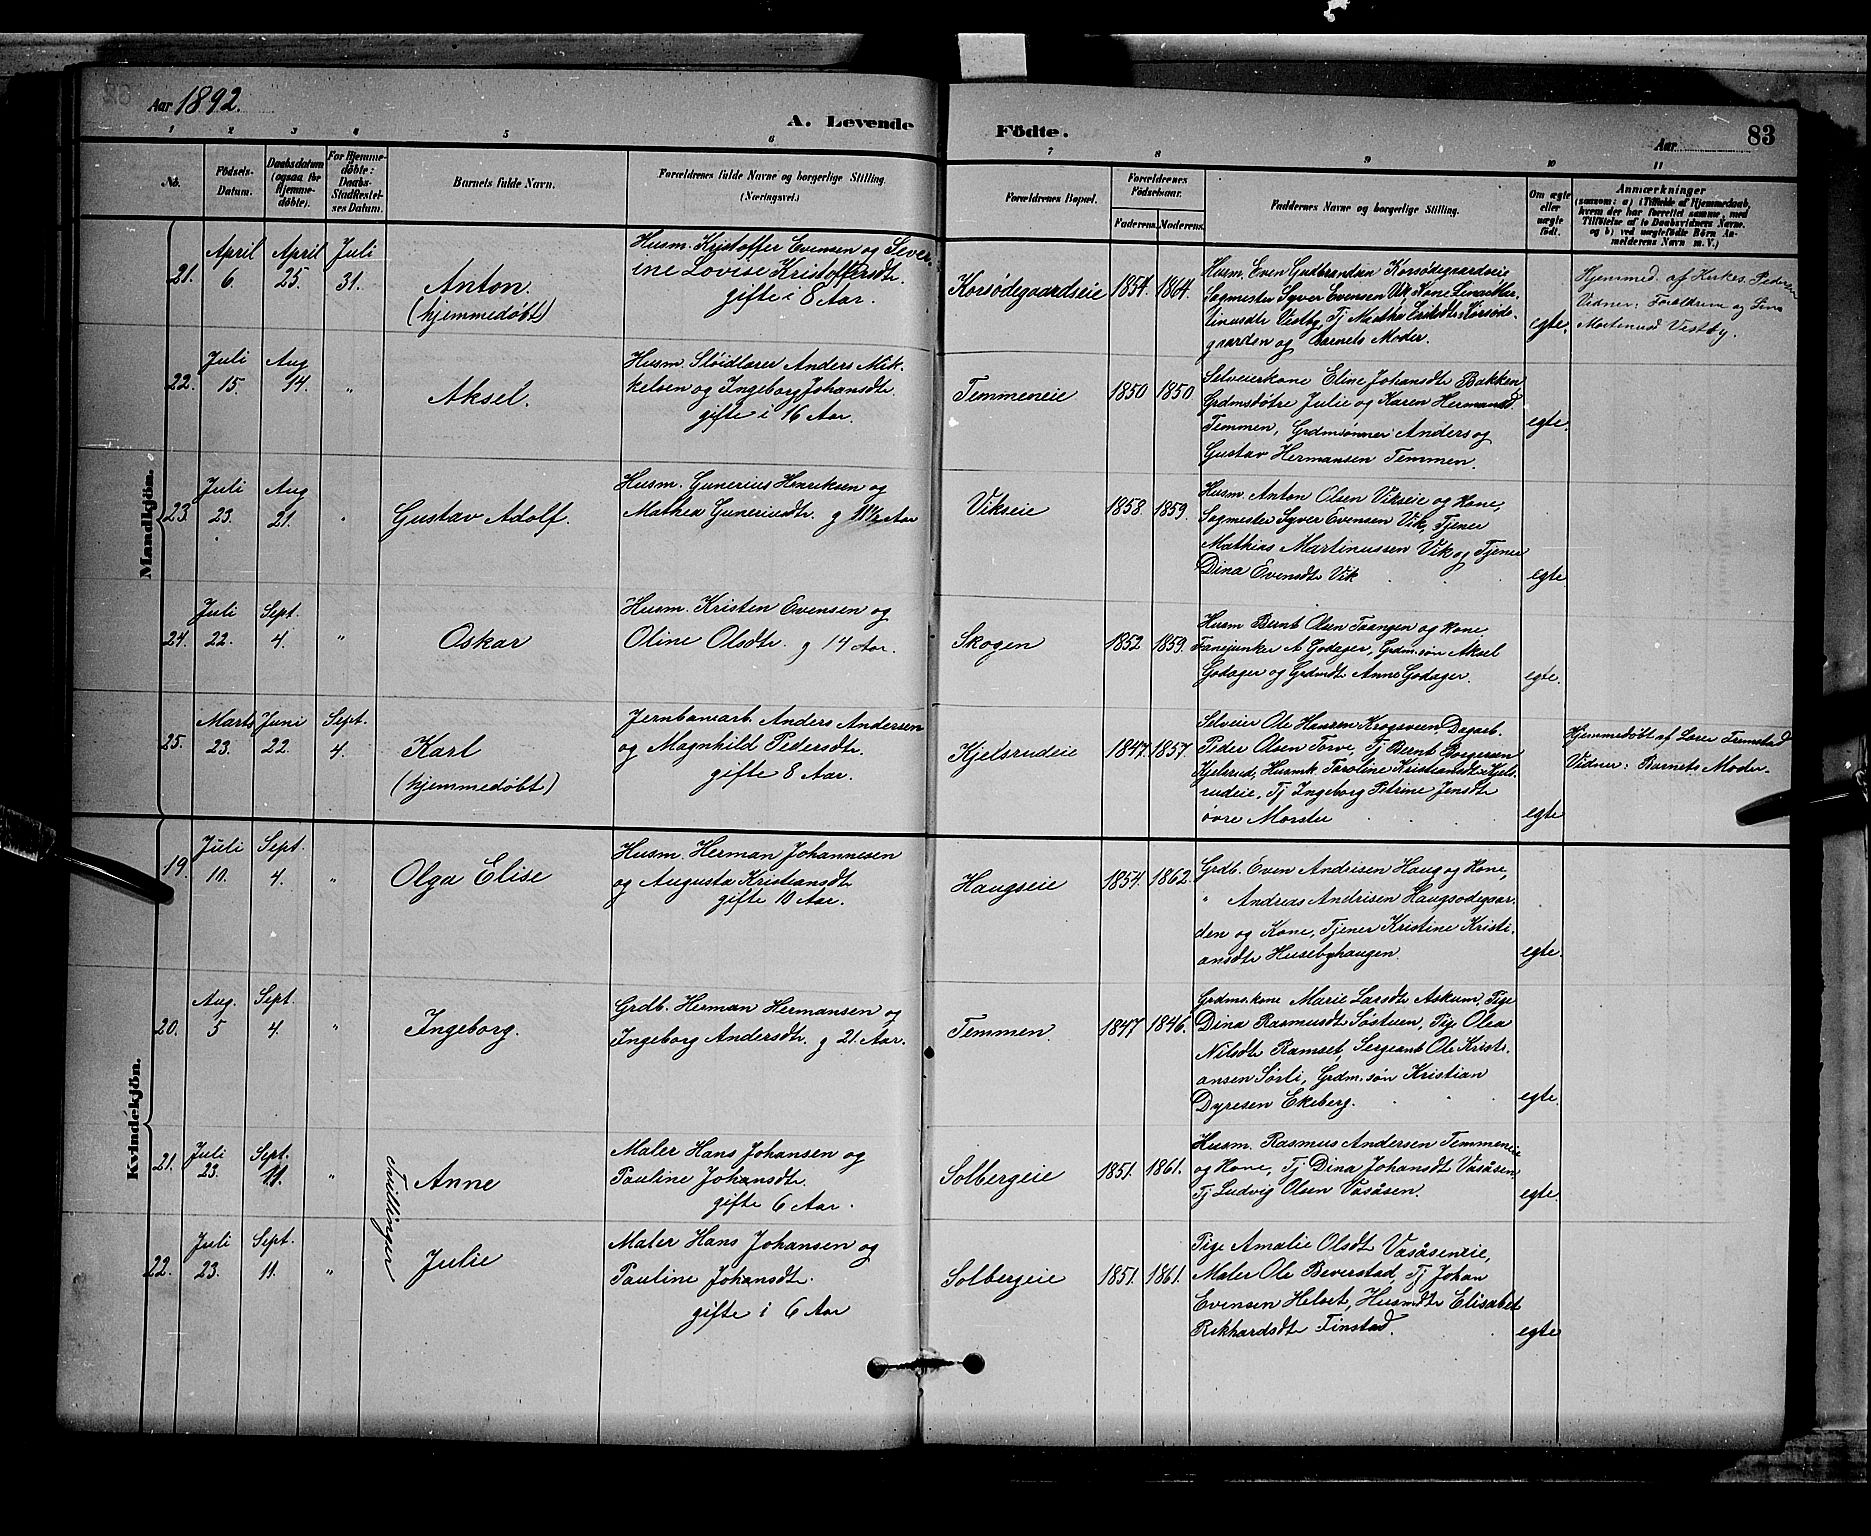 Aar 1892.
A. Levende
Födte.
Aar
83
1
2
3
4
5
6
7
8
9
10
11
No.
Födsels-
Datum.
Daabsdatum
(ogsaa for
Hjemme-
døbte).
For Hjemme-
døbte:
Daabs-
Stadfæstel-
ses Datum.
Barnets fulde Navn.
Forældrenes fulde Navne og borgerlige Stilling.
(Næringsvei.)
Forældrenes Bopæl.
Forældrenes
Födselsaar.
Faderens.
Moderens.
Faddernes Navne og borgerlige Stilling.
Om ægte
eller
uægte
født.
Anmærkninger
(saasom: a) i Tilfælde af Hjemmedaab,
hvem der har forrettet samme, med
Tilföielse af to Daabsvidners Navne,
og b) ved uægtefødte Börn An-
melderens Navn m. V.)
Mandkjön.
21.
April
6.
April
25.
Juli
31.
Anton.
(hjemmedøbt)
Husm. Kristoffer Evensen og Sever-
ine Lovise Kristoffersdt.
gifte i 8 Aar.
Korsödegaardseie
1854.
1864.
Husm. Even Gudbrandsen Korsödegaardseie
Sagmester Syver Evensen Vik, Kone Lina Mar-
tinusdtr Vestby, Tj Marthe Korsöde-
gaarden og Barnets Moder.
egte.
Hjemmed. af Kirkes. Pedersen
Vidner: Forældrene og Lina
Vestby.
22.
Juli
15.
Aug
14.
"
Aksel.
Husm. Slöidlærer Anders Mik-
kelsen og Ingeborg Johansdtr.
gifte i 16 Aar.
Temmeneie
1850
1850.
Selveierkone Eline Johansdtr Bakken
Grdmsdøtre Julie og Karen Hermansd
Temmen, Grdmsønner Anders og
Gustav Hermansen Temmen.
egte.
23.
Juli
23.
Aug
21.
"
Gustav Adolf.
Husm. Gunerius Henriksen og
Mathea Guneriusdtr. g 11½ Aar
Vikseie
1858.
1859.
Husm. Anton Olsen Vikseie og Kone,
Sagmester Syver Evensen Vik, Tjener
Mathias Martinussen Vik og Tjener
Dina Evensdtr Vik.
egte
24.
Juli
22.
Sept.
4.
"
Oskar
Husm. Kristen Evensen og
Oline Olsdtr. g 14 Aar.
Skogen
1852
1859.
Husm Bernt Olsen Taangen og Kone
Fanejunker A Godager, Grdm.søn Aksel
Godager og Grdmdt Anne Godager.
egte.
25.
Marts
23.
Juni
22.
Sept.
4.
Karl
(hjemmedøbt)
Jernbanearb. Anders Andersen
og Magnhild Pedersdtr.
gifte 8 Aar.
Kjelsrudeie
1847.
1857.
Selveier Ole Hansen Krogsveen, Dagarb.
Peder Olsen Torve, Tj Bernt Borgersen
Kjelsrud, Husmk. Karoline Kristiansdt Kjels-
rudeie, Tj Ingeborg Petrine Jensdtr
övre Morstu
egte
Hjemmedøbt af Lærer Fremstad
Vidner: Barnets Moder.
Kvindekjön.
19.
Juli
10.
Sept.
4.
"
Olga Elise
Husm. Herman Johannesen
og Augusta Kristiansdt
gifte 10 Aar.
Haugseie
1854.
1862.
Grdb. Even Andrisen Haug og Kone,
" Andreas Andrisen Haugsodegaar-
den og Kone, Tjener Kristine Kristi-
ansdtr Husebyhaugen.
egte.
20.
Aug.
5
Sept.
4.
"
Ingeborg.
Grdb. Herman Hermansen og
Ingeborg Andersdtr. g 21. Aar.
Temmen.
1847
1846.
Grdms.kone Marie Larsdtr Askum, Pige
Dina Rasmusdtr Søstuen, Pige Olea
Nilsdtr Ramset, Sergeant Ole Kristi-
ansen Sørli, Grdm.søn Kristian
Dyresen Ekeberg.
egte.
Tvillinger
21.
Juli
23.
Sept.
11.
"
Anne
Maler Hans Johansen og
Pauline Johansdtr.
gifte 6 Aar.
Solbergeie
1851.
1861.
Husm. Rasmus Andersen Temmeneie
og Kone, Tj Dina Johansdt Vasåsen,
Tj Ludvig Olsen Vasåsen.
egte.
22.
Juli
23.
Sept.
11.
"
Julie
Maler Hans Johansen og
Pauline Johansdtr.
gifte i 6 Aar
Solbergeie
1851.
1861.
Pige Amalie Olsdt Vasåseneie,
Maler Ole Beverstad, Tj Johan
Evensen Helset, Husmdtr Elisabet
Rikhardsdtr Finstad.
egte